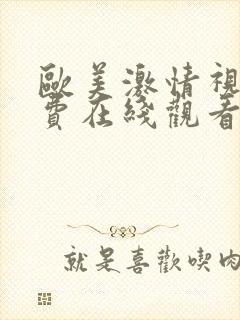 歐美激情視
費在綫觀看
就是喜歡喫肉